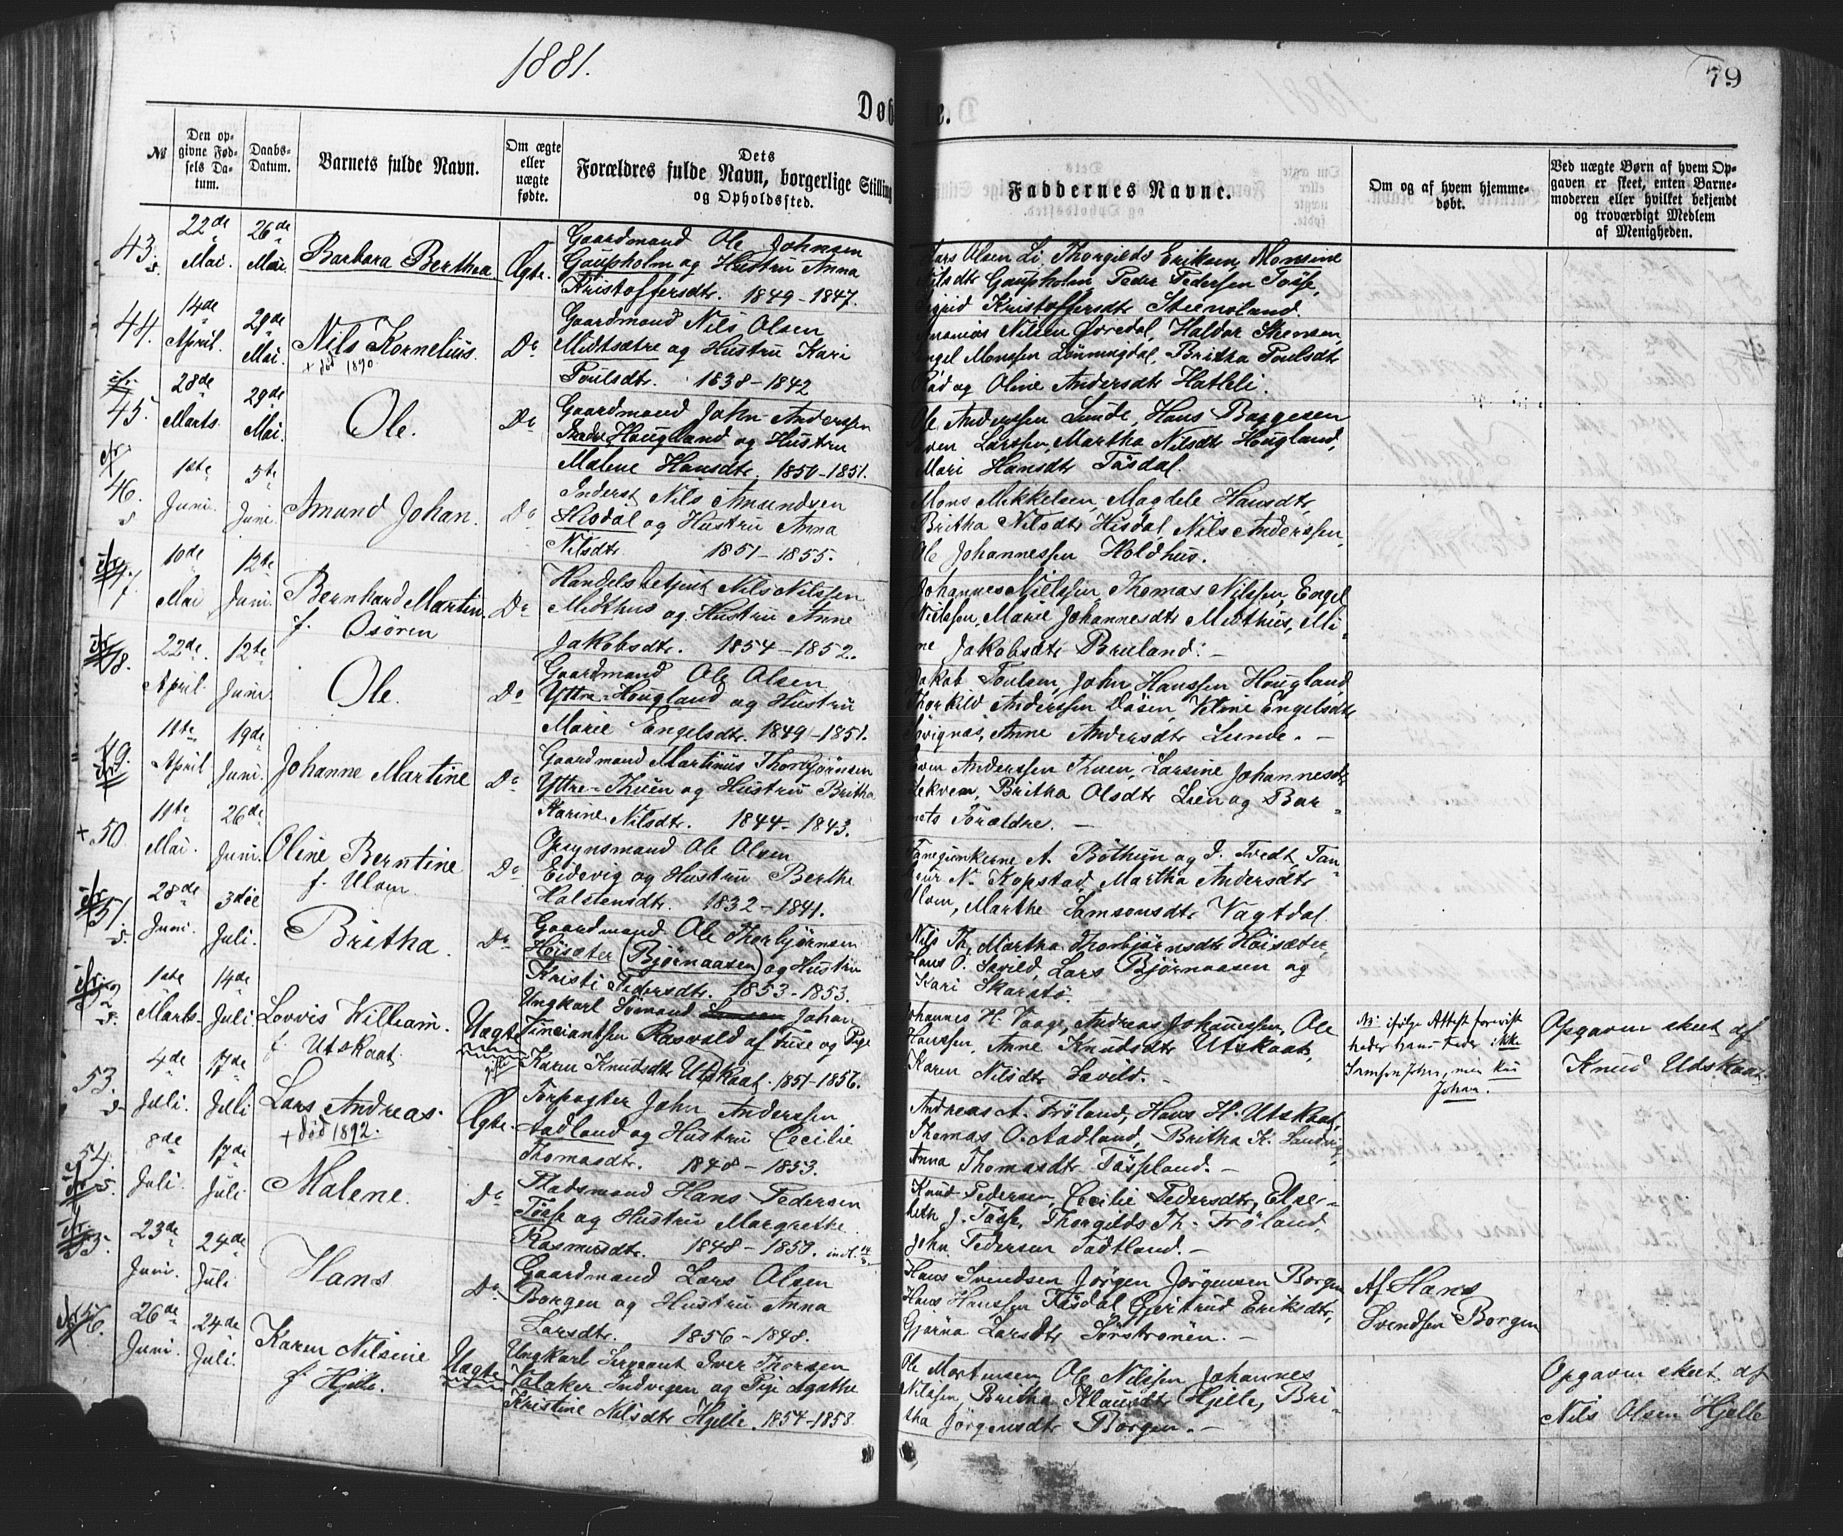 1881.
79
Døbte.
№
Den opgivne Fødsels Datum.
Daabs-Datum.
Barnets fulde Navn.
Om ægte eller uægte fødte.
Dets Forældres fulde Navn, borgerlige Stilling og Opholdssted.
Faddernes Navne.
Om og af hvem hjemmedøbt.
Ved uægte Børn af hvem Opgaven er skeet, enten Barnemoderen eller hvilket bekjendt og troværdigt Medlem af Menigheden.
43. 22de Mai. 26de Mai. Barbara Berthea Ægte.
Gaardmand Ole Johnsen
Gaupholm og Hustru Anna
Kristoffersdtr. 1849-1847.
Lars Olsen Li, Thorgilds Eriksen, Monsine
Nilsdt Gaupholm, Peder Pedersen Tøsse,
Sigrid Kristoffersdt Steensland.
44. 14de April. 29de Mai. Nils Kornelius. Do
+ død 1890.
Gaardmand Nils Olsen
Midtsætre og Hustru Kari
Poulsdtr. 1838-1842
Ananias Nilsen Øvredal, Haldor Steensen,
Engel Monssen Lønningdal, Britha Poulsdt
Rød og Oline Andersdt Hatleli.
45. 28de Marts. 29de Mai. Ole. Do
Gaardmand John Anderssen
Indre Hougland og Hustru
Malene Hansdtr. 1850-1851.
Ole Anderssen Lunde, Hans Baggesen
Sven Larssen, Martha Nilsdt Hougland,
Mari Hansdt Tøsdal.
46. 1ste Juni. 5te Juni. Amund Johan. Do
Inderst Nils Amundsen
Hisdal og Hustru Anna
Nilsdtr 1851-1855.
Mons Mikkelsen, Magdele Hansdtr,
Britha Nilsdtr Hisdal, Nils Anderssen,
Ole Johannessen Holdhus.
47. 10de Mai 12te Juni. Bernhard Martin. Do
f. Osøren
Handelsbetjent Nils Nilssen
Midthus og Hustru Anne
Jakobsdtr. 1854-1852.
Johannes Nilssen, Thomas Nilssen, Engel
Nielssen, Marie Johannesdt Midthus, Mi-
ne Jakobsdt Bruland. -
48. 22de April. 12te Juni. Ole. Do
Gaardmand Ole Olsen
Yttre-Hougland og Hustru
Marie Engelsdtr. 1849-1851.
Jakob Poulsen, John Hanssen Hougland
Thorkild Anderssen Døsen, Veline Engelsdt
Søvignæs, Anne Andersdt Lunde. -
49. 11te April 19de Juni. Johanne Martine Do
Gaardmand Martinus Thorbjørnsen
Yttre-Thuen og Hustru Britha
Karine Nilsdtr. 1844-1843.
Sven Anderssen Thuen, Larsine Johannesdt
Lekven, Britha Olsdtr Lien og Bar-
nets Forældre. -
+ 50 11te Mai. 26de Juni. Oline Berntine Do
f. Ulven
Opsynsmand Ole Olsen
Eidevig og Hustru Berthe
Halstensdtr. 1832-1841.
A. Bøthun og I. Tvedt, Tan-
N. Kopstad, Martha Andersdtr
Ulven, Marthe Samsonsdtr Vagtdal
51. 28de Juni. 3die Juli. Britha. Do
Gaardmand Ole Thorbjørnsen
Høisæter (Bjørnaasen) og Hustru
Kristi Pedersdtr. 1853-1853.
Nils Th, Martha Thorbjørnsdt Høisæter,
Hans O. Søvild, Lars Bjørnaasen og
Kari Skarstø.
52. 1ste Marts. 14de Juli. Lovvis William. Uægte
f Utskaat.
Ungkarl Sømand Johan
Rosvold af Fuse og Pige
Karen Knudsdt Utskaat. 1851-1856.
Johannes H. Vaage, Andreas Johannessen, Ole
Hanssen, Anne Knudsdt Utskaat,
Karen Nilsdt Søvild. -
ifølge Attest
heder hans Fader ikke
Simson John, men kun
Johan.
Opgaven skeet af
Knud Utskaat.
53. 4de Juli. 17de Juli Lars Andreas. Ægte.
+ død 1892.
Forpagter John Anderssen
Aadland og Hustru Cecilie
Thomasdtr. 1848-1853.
Andreas A. Frøland, Hans H. Utskaat,
Thomas O. Aadland, Britha K. Sandvig,
Anna Thomasdt Tøsseland. -
54. 8de Juli. 17de Juli Malene. Do
Pladsmand Hans Pedersen
Tøsse og Hustru Margrethe
Rasmusdtr. 1848-1853.
Knud Pedersen, Cecilie Pedersdtr, Else-
beth J. Tøsse, Thorgilds Th. Frøland,
John Pedersen Tadtland. -
55. 23de Juni. 24de Juli Hans Do
Gaardmand Lars Olsen
Borgen og Hustru Anna
Larsdtr. 1856-1848.
Hans Svendsen, Jørgen Jørgensen Borgen
Hans Hanssen Tøsdal, Gjertrud Eriksdtr,
Gjørna Larsdt Sørstrønen. -
Af Hans
Svendsen Borgen
56. 26de Juni. 24de Juli. Karen Nilsine Uægte
f. Hjelle.
Ungkarl Sergeant Iver Thorsen
Valaker Indvigen og Pige Agathe
Kristine Nilsdt Hjelle. 1854-1858.
Ole Mortensen, Ole Nilssen, Johannes
Nilssen, Britha Klausdt Hjelle, Bri-
tha Jørgensdt Borgen. -
Opgaven skeet af
Nils Olsen Hjelle